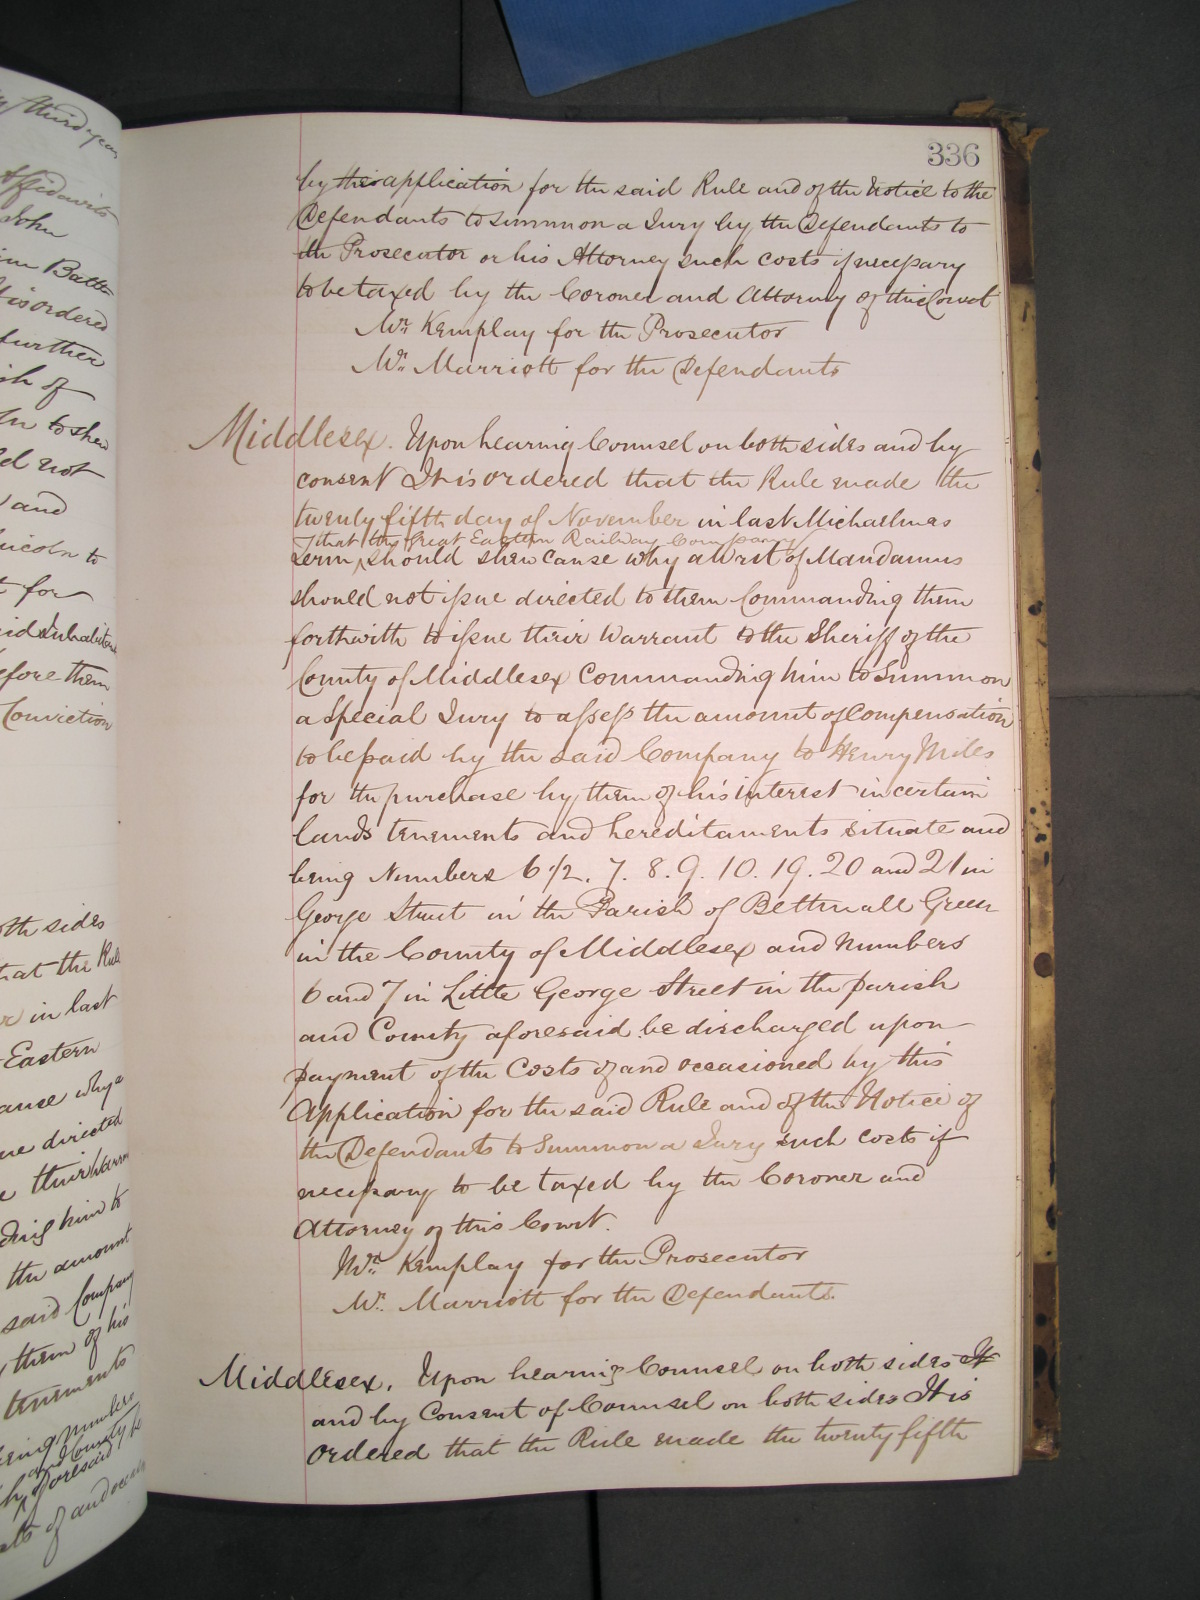 336
by this application for the said Rule and of the Notice to the
Defendants to summon a Jury by the Defendants to
the Prosecutor or his Attorney such costs if necessary
to be taxed by the Coroner and Attorney of this Court
Mr. Kemplay for the Prosecutor
Mr. Marriott for the Defendants
Middlesex. Upon hearing Counsel on both sides and by
consent It is ordered that the Rule made the
twenty fifth day of November in last Michaelmas
that the Great Eastern Railway Company
Term, should shew cause why a Writ of Mandamus
should not issue directed to them Commanding them
forthwith to issue their Warrant to the Sheriff of the
County of Middlesex Commanding him to Summon
a Special Jury to assess the amount of Compensation
to be paid by the said Company to Henry Miles
for the purchase by them of his interest in certain
lands tenements and hereditaments situate and
being Numbers 6 1/2. 7. 8. 9. 10. 19. 20 and 21 in
George Street in the Parish of Bethnall Green
in the County of Middlesex and Numbers
6 and 7 in Little George Street in the parish
and County aforesaid be discharged upon
payment of the Costs of and occasioned by this
Application for the said Rule and of the Notice of
the Defendants to Summon a Jury such costs if
necessary to be taxed by the Coroner and
Attorney of this Court.
Mr. Kemplay for the Prosecutor
Mr. Marriott for the Defendants.
Middlesex. Upon hearing Counsel on both sides It
and by Consent of Counsel on both sides It is
ordered that the Rule made the twenty fifth
third year
Affidavits
John
Battle
is ordered
further
ish of
to shew
not
and
Lincoln to
for
said Inhabitants
before them
Conviction
both sides
that the Rule
in last
Eastern
cause why a
directed
their Warrant
him to
the amount
said Company
them of his
tenements
being numbers
and County
aforesaid be
of and